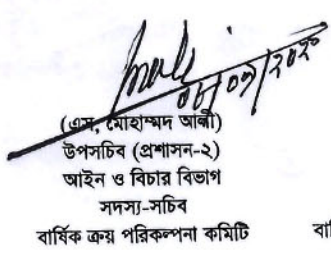 ০৮/০৭/২০২০
(এস, মোহাম্মদ আলী)
উপসচিব (প্রশাসন-২)
আইন ও বিচার বিভাগ
সদস্য-সচিব
বার্ষিক ক্রয় পরিকল্পনা কমিটি